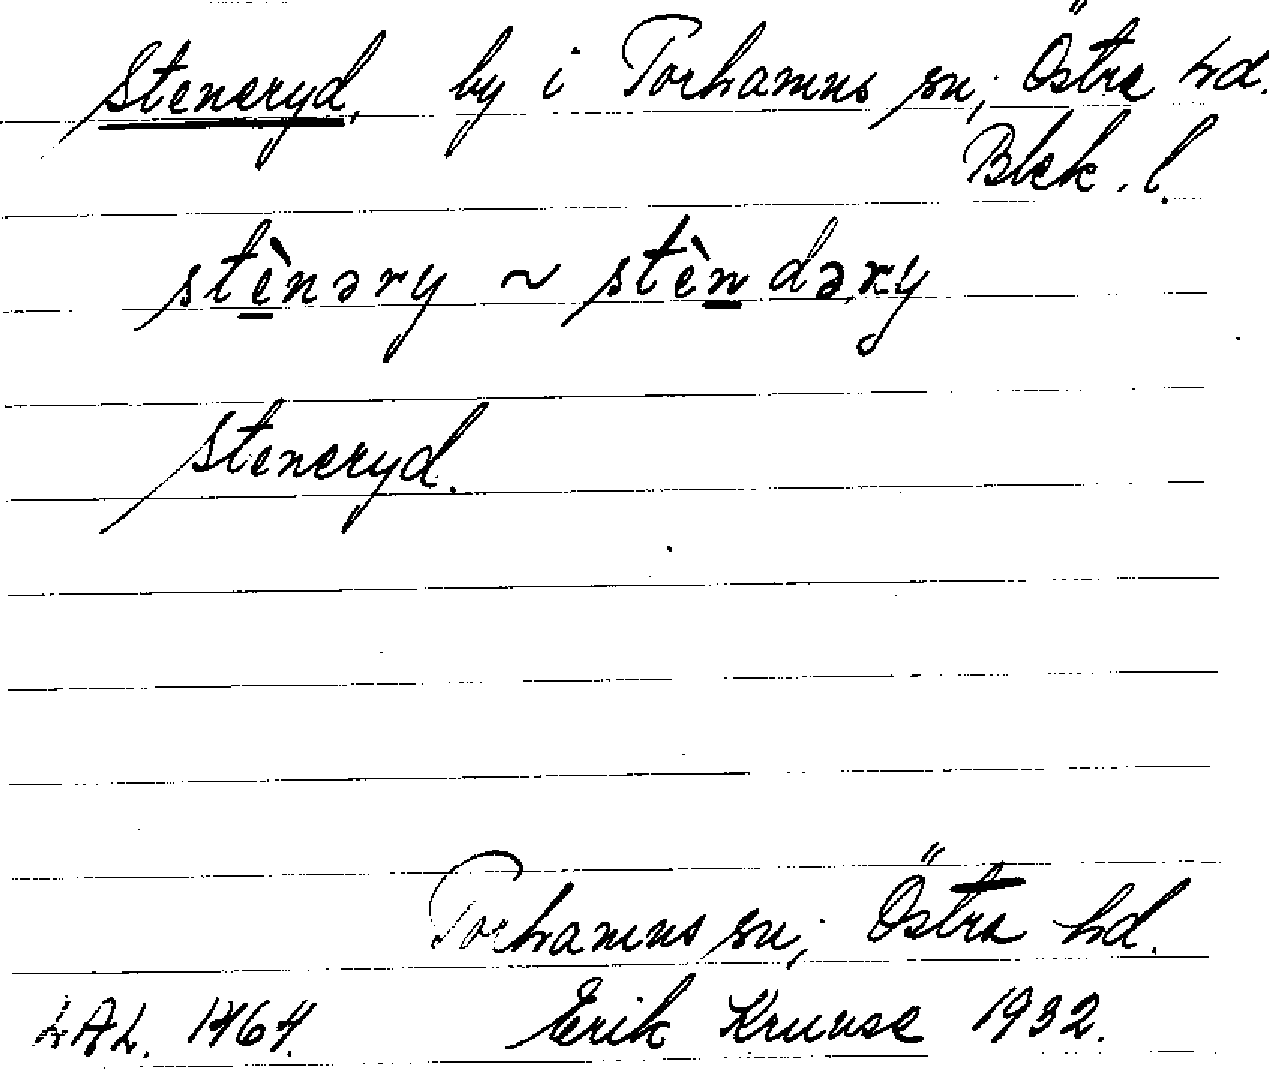 Steneryd, by i Torhamns sn; Östra hd.
Blek. l.
stè̱nəry ~ stèṉdəry
Steneryd.
Torhamns sn; Östra hd.
LAL. 1464. Erik Kruuse 1932.